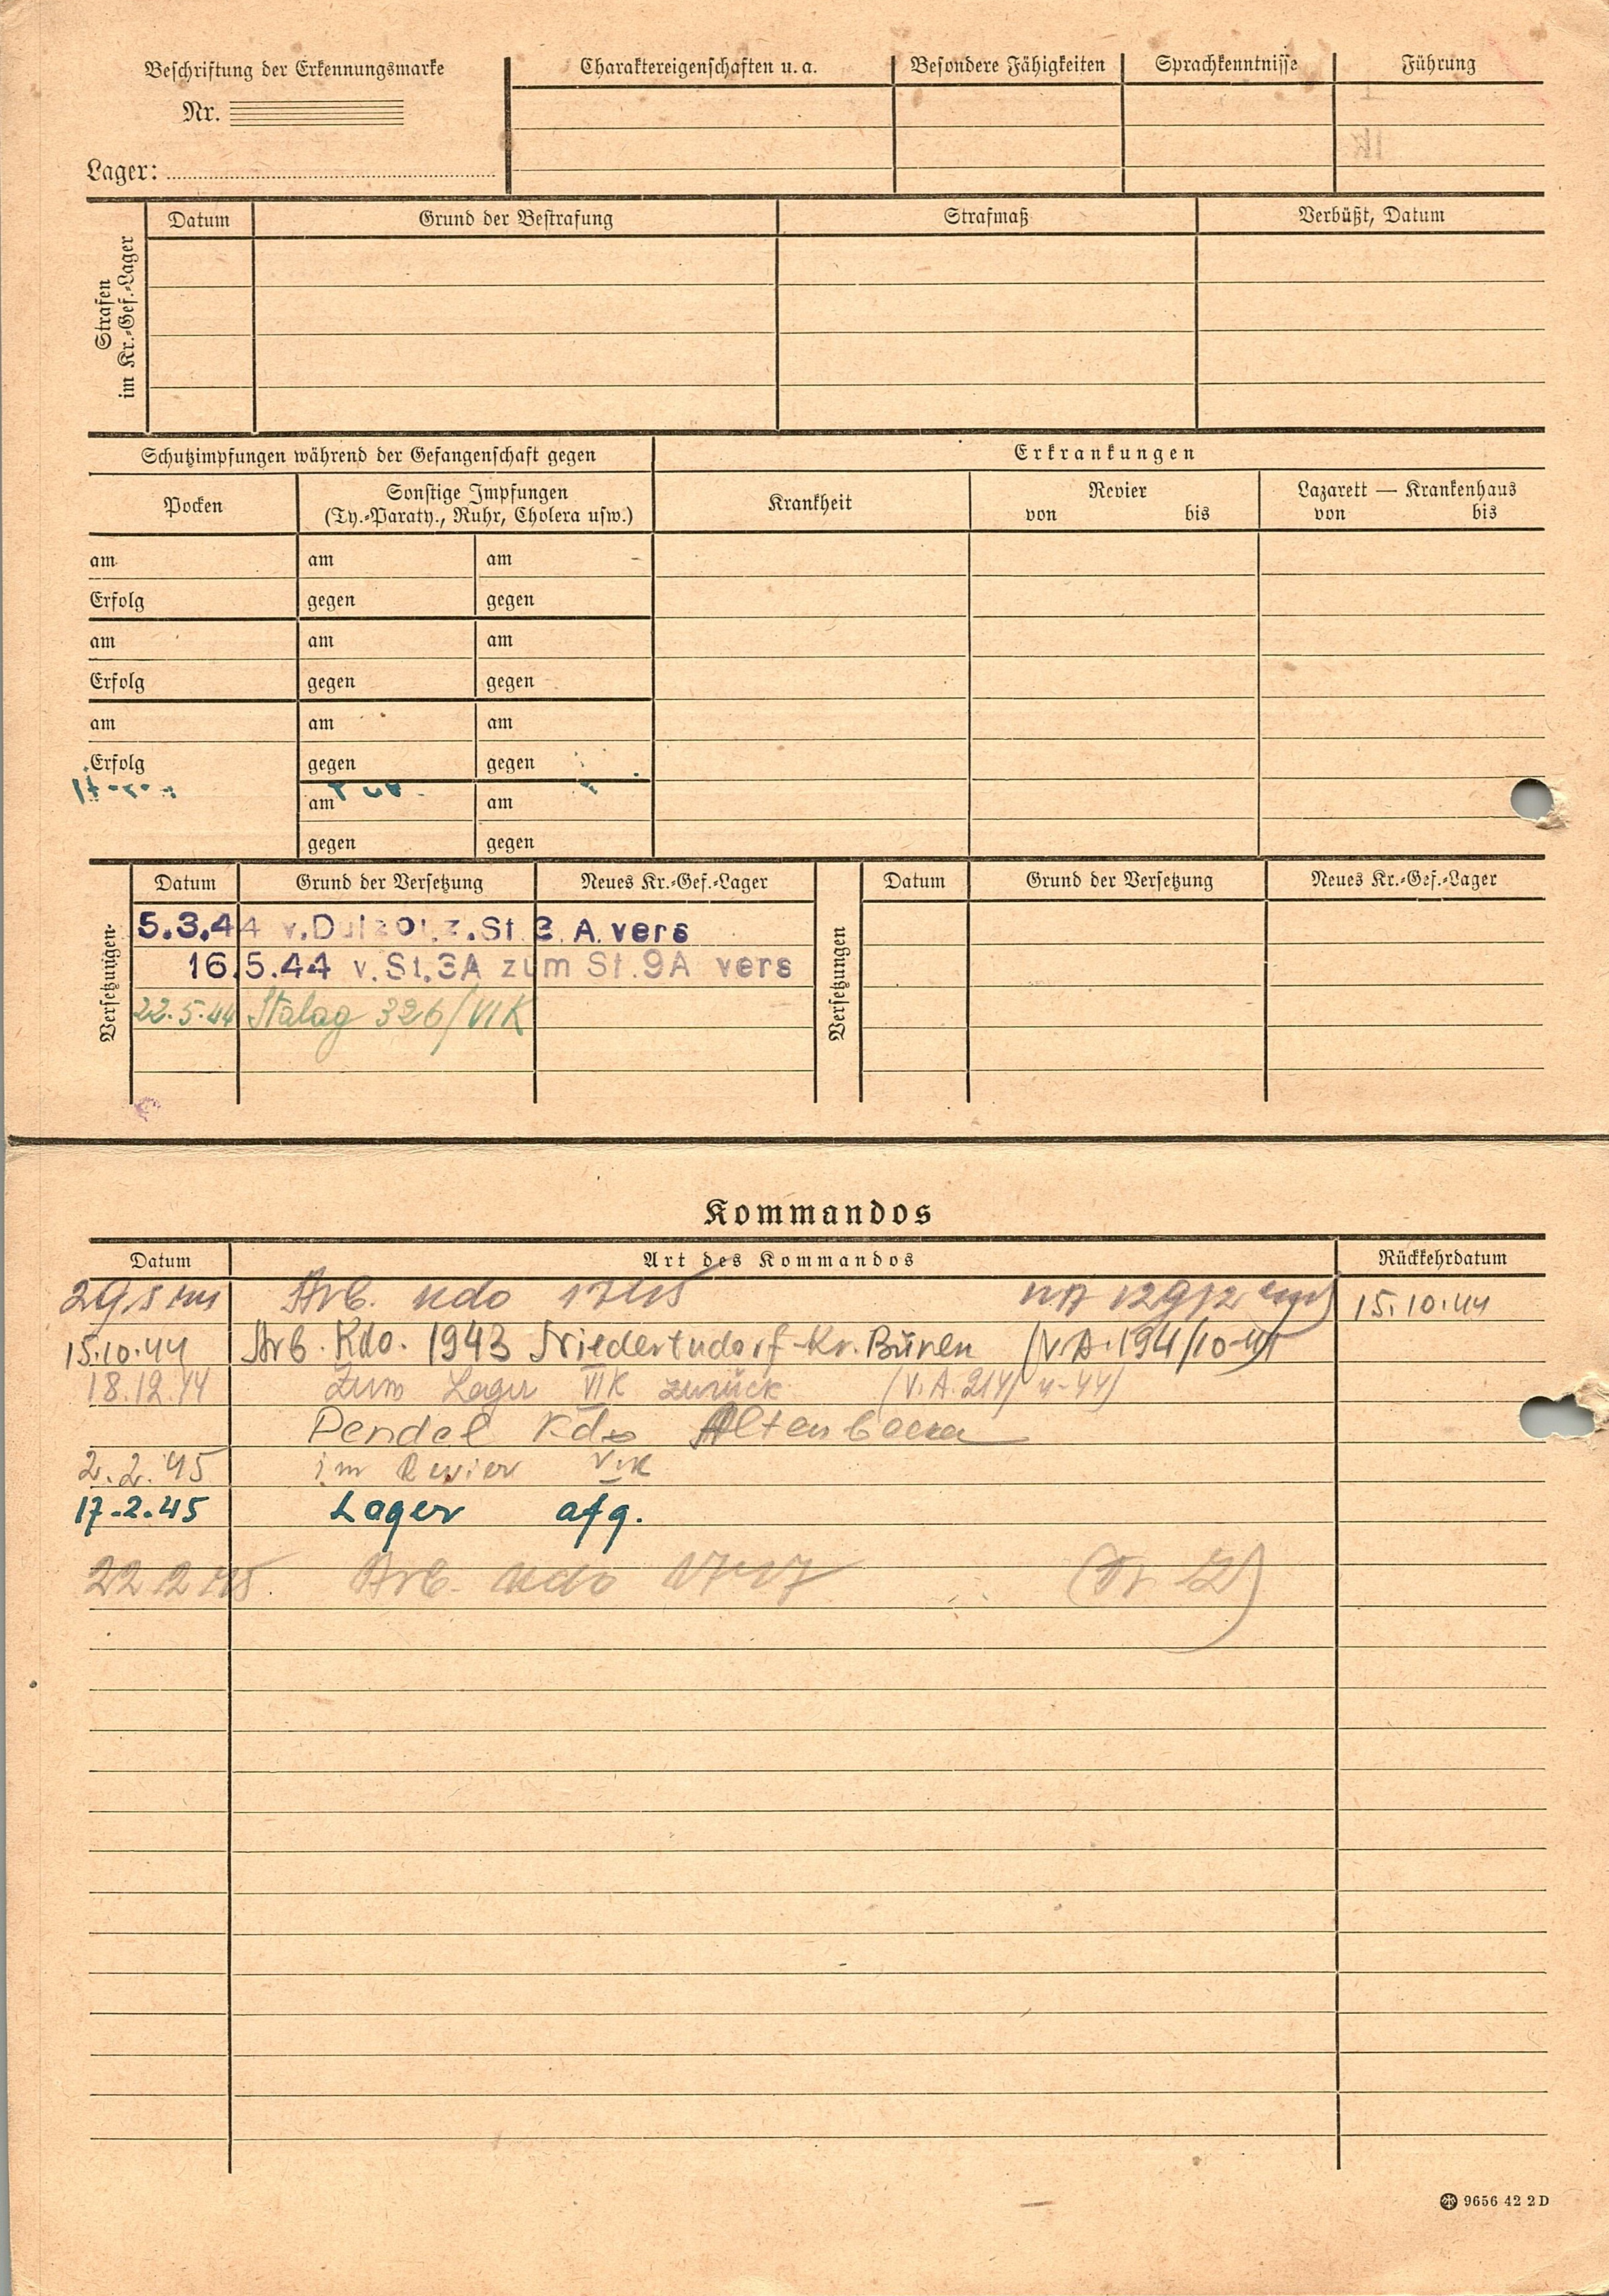 Beschriftung der Erkennungsmarke
Nr.
Lager:
Charaktereigenschaften u. a.
Besondere Fähigkeiten
Sprachkenntnisse
Führung
Strafen
im Kr.-Gef.-Lager
Datum
Grund der Bestrafung
Strafmaß
Verbüßt, Datum
Schutzimpfungen während der Gefangenschaft gegen
Erkrankungen
Pocken
Sonstige Impfungen
(Ty.-Paraty., Ruhr, Cholera usw.)
Krankheit
Revier
von bis
Lazarett — Krankenhaus
von bis
am am am
Erfolg gegen gegen
am am am
Erfolg gegen gegen
am am am
Erfolg gegen gegen
am am
gegen gegen
Versetzungen
Datum Grund der Versetzung Neues Kr.-Gef.-Lager
5.3.44 z. St. 3 A. vers
16.5.44 v. St. 3A zum St. 9A vers
22.5.44 Stalag 326/VI K
Versetzungen
Datum Grund der Versetzung Neues Kr.-Gef.-Lager
Kommandos
Datum Art des Kommandos Rückkehrdatum
Arb. Kdo 15.10.44
15.10.44 Arb. Kdo. 1943 Niederntudorf Kr. Büren (V.A. 194/10-44
18.12.44 Zum Lager VI K zurück
Pendel Kdo Altenbecken
2.2.45 im Revier VI K
17.2.45 Lager afg.
22.2.45 Arb. Kdo
9656 42 2 D